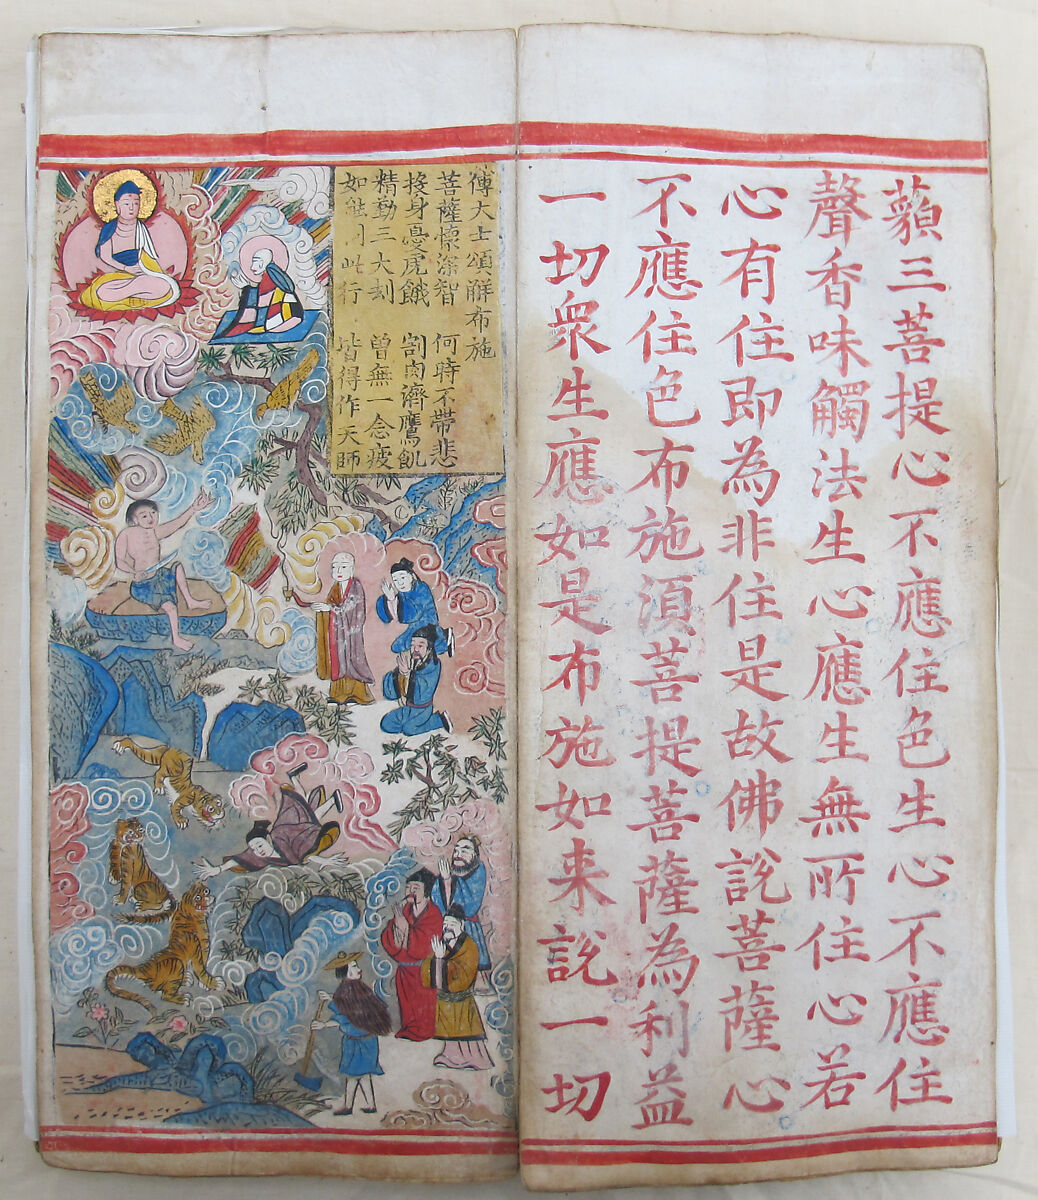 藐三菩提心不應住色生心不應住
聲香味觸法生心應生無所住心若
心有住即為非住是故佛說菩薩心
不應住色布施湏菩提菩薩為利益
一切眾生應如是布施如来說一切
傅大士頌解布施
菩薩懷深智 何時不帶悲
投身憂虎餓 割肉濟鷹飢
精勤三大刦 曾無一念疲
如能同此行 皆得作天師